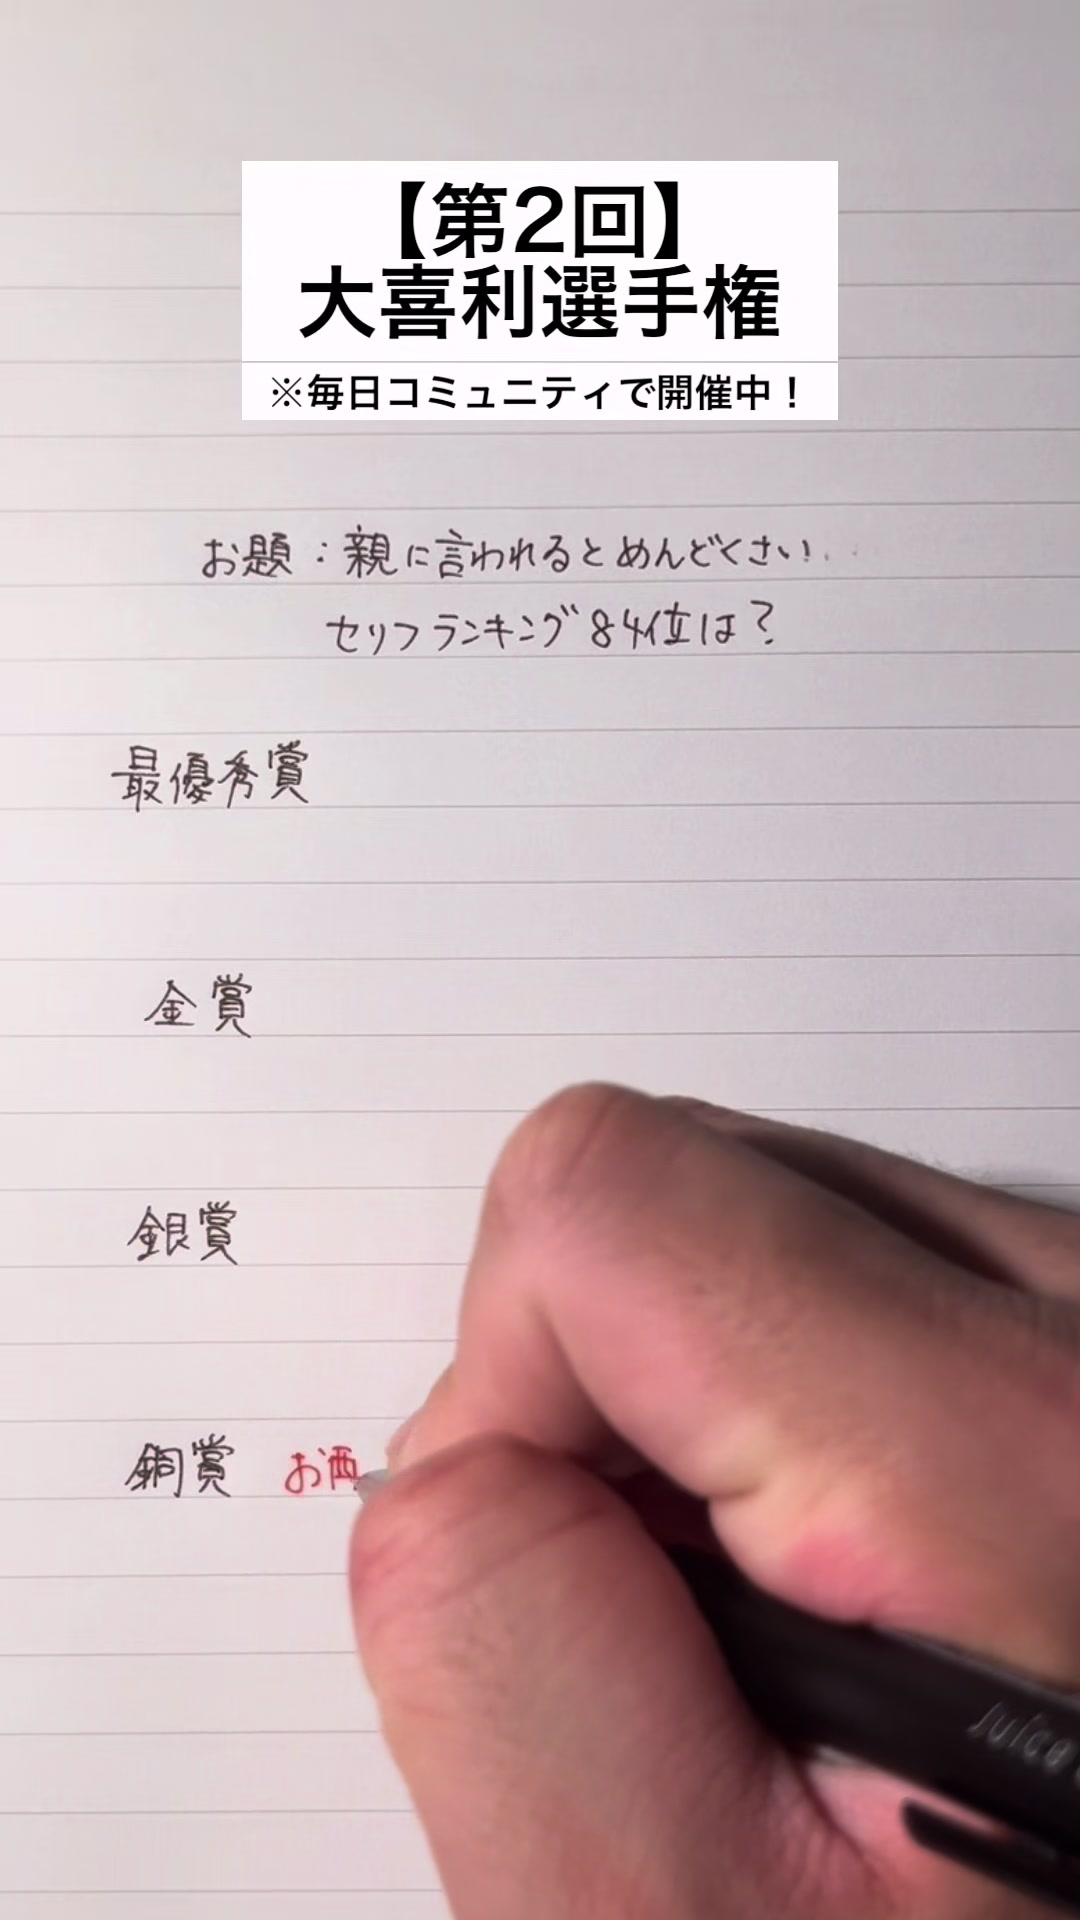 【第2回】
大喜利選手権
※毎日コミュニティで開催中！
お題：親に言われるとめんどくさい
セリフランキング84位は？
最優秀賞
金賞
銀賞
銅賞 お西
Juice